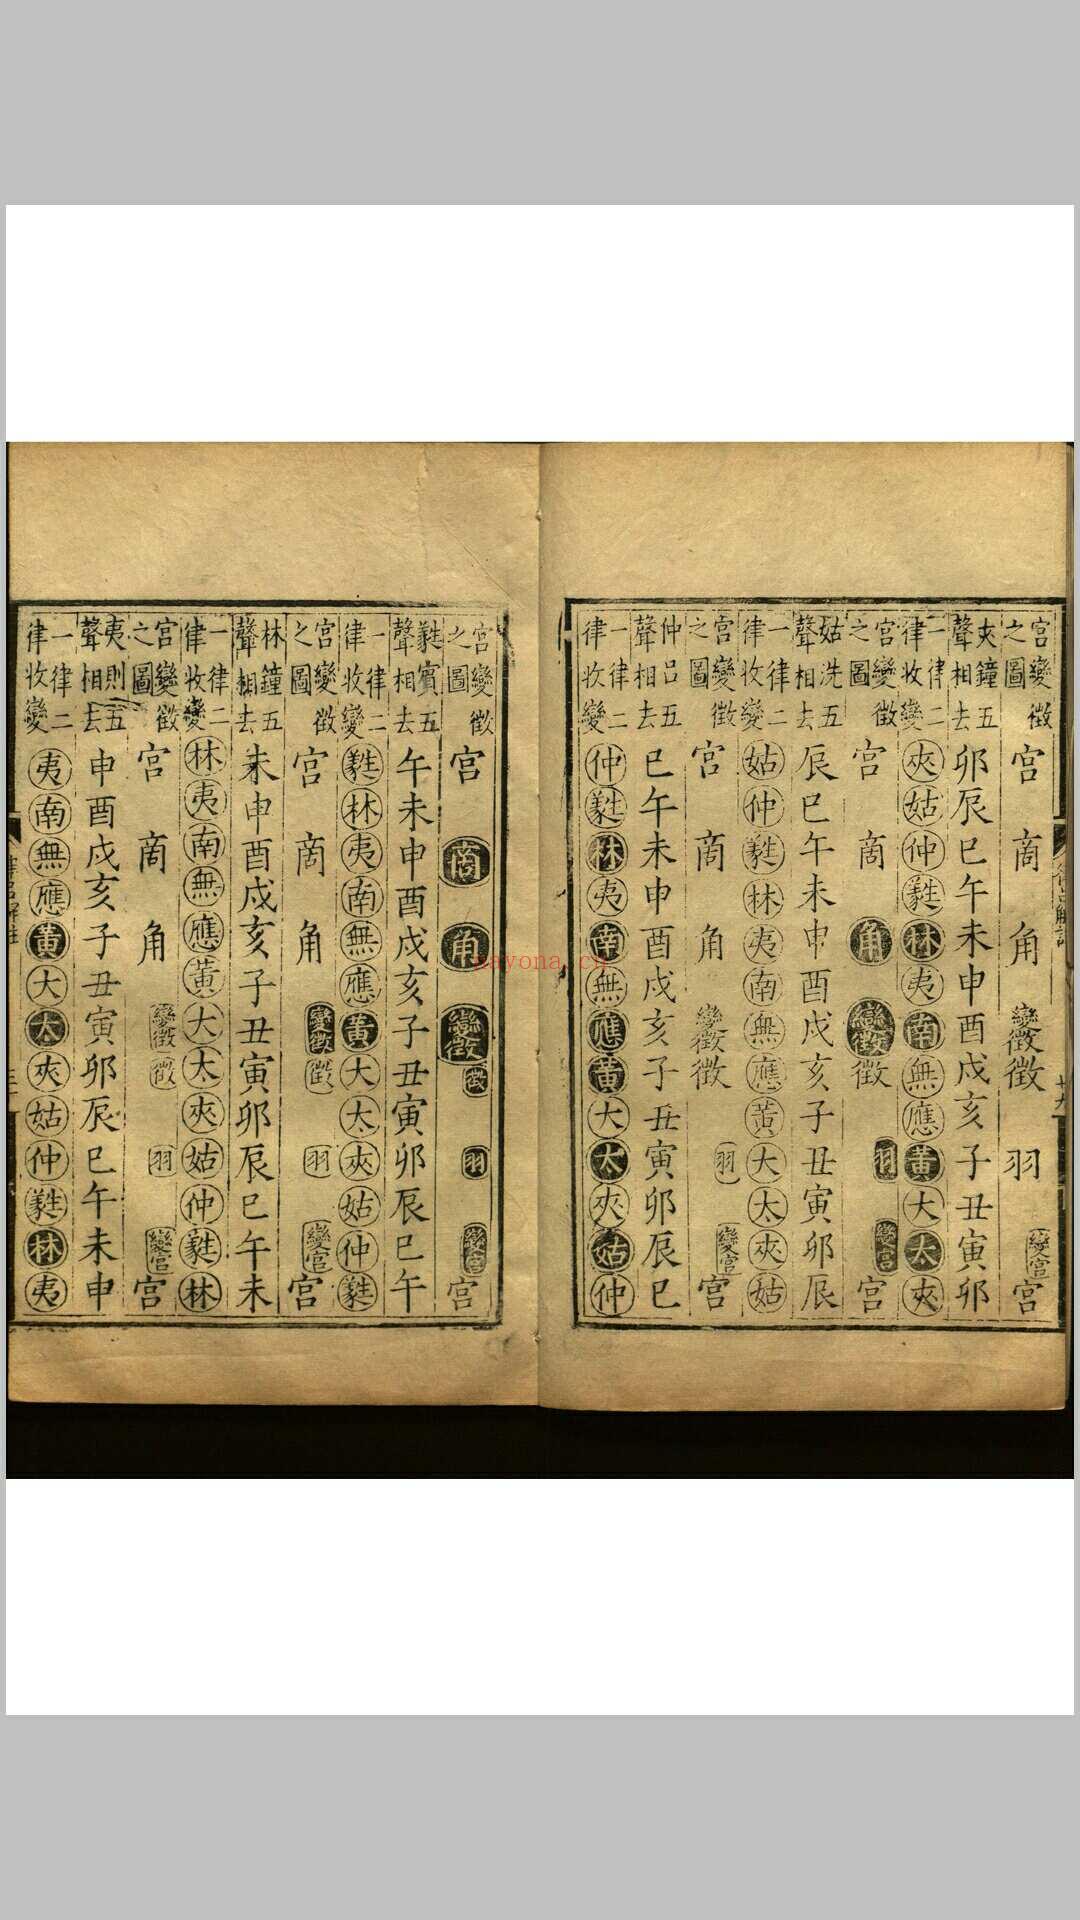 宮變徵之圖 宮 商 角 變徵 徵 羽 變宮 宮
夾鐘五聲相去 卯辰巳午未申酉戌亥子丑寅卯
一律二律收變 夾姑仲蕤林夷南無應黃大太夾
宮變徵之圖 宮 商 角 變徵 徵 羽 變宮 宮
姑洗五聲相去 辰巳午未申酉戌亥子丑寅卯辰
一律二律收變 姑仲蕤林夷南無應黃大太夾姑
宮變徵之圖 宮 商 角 變徵 徵 羽 變宮 宮
仲呂五聲相去 巳午未申酉戌亥子丑寅卯辰巳
一律二律收變 仲蕤林夷南無應黃大太夾姑仲
宮變徵之圖 宮 商 角 變徵 徵 羽 變宮 宮
蕤賓五聲相去 午未申酉戌亥子丑寅卯辰巳午
一律二律收變 蕤林夷南無應黃大太夾姑仲蕤
宮變徵之圖 宮 商 角 變徵 徵 羽 變宮 宮
林鐘五聲相去 未申酉戌亥子丑寅卯辰巳午未
一律二律收變 林夷南無應黃大太夾姑仲蕤林
宮變徵之圖 宮 商 角 變徵 徵 羽 變宮 宮
夷則五聲相去 申酉戌亥子丑寅卯辰巳午未申
一律二律收變 夷南無應黃大太夾姑仲蕤林夷
nayona.cn